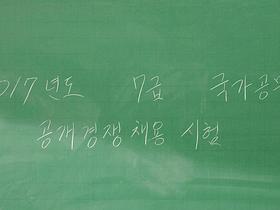 017년도 7급 국가공
공개경쟁채용 시험